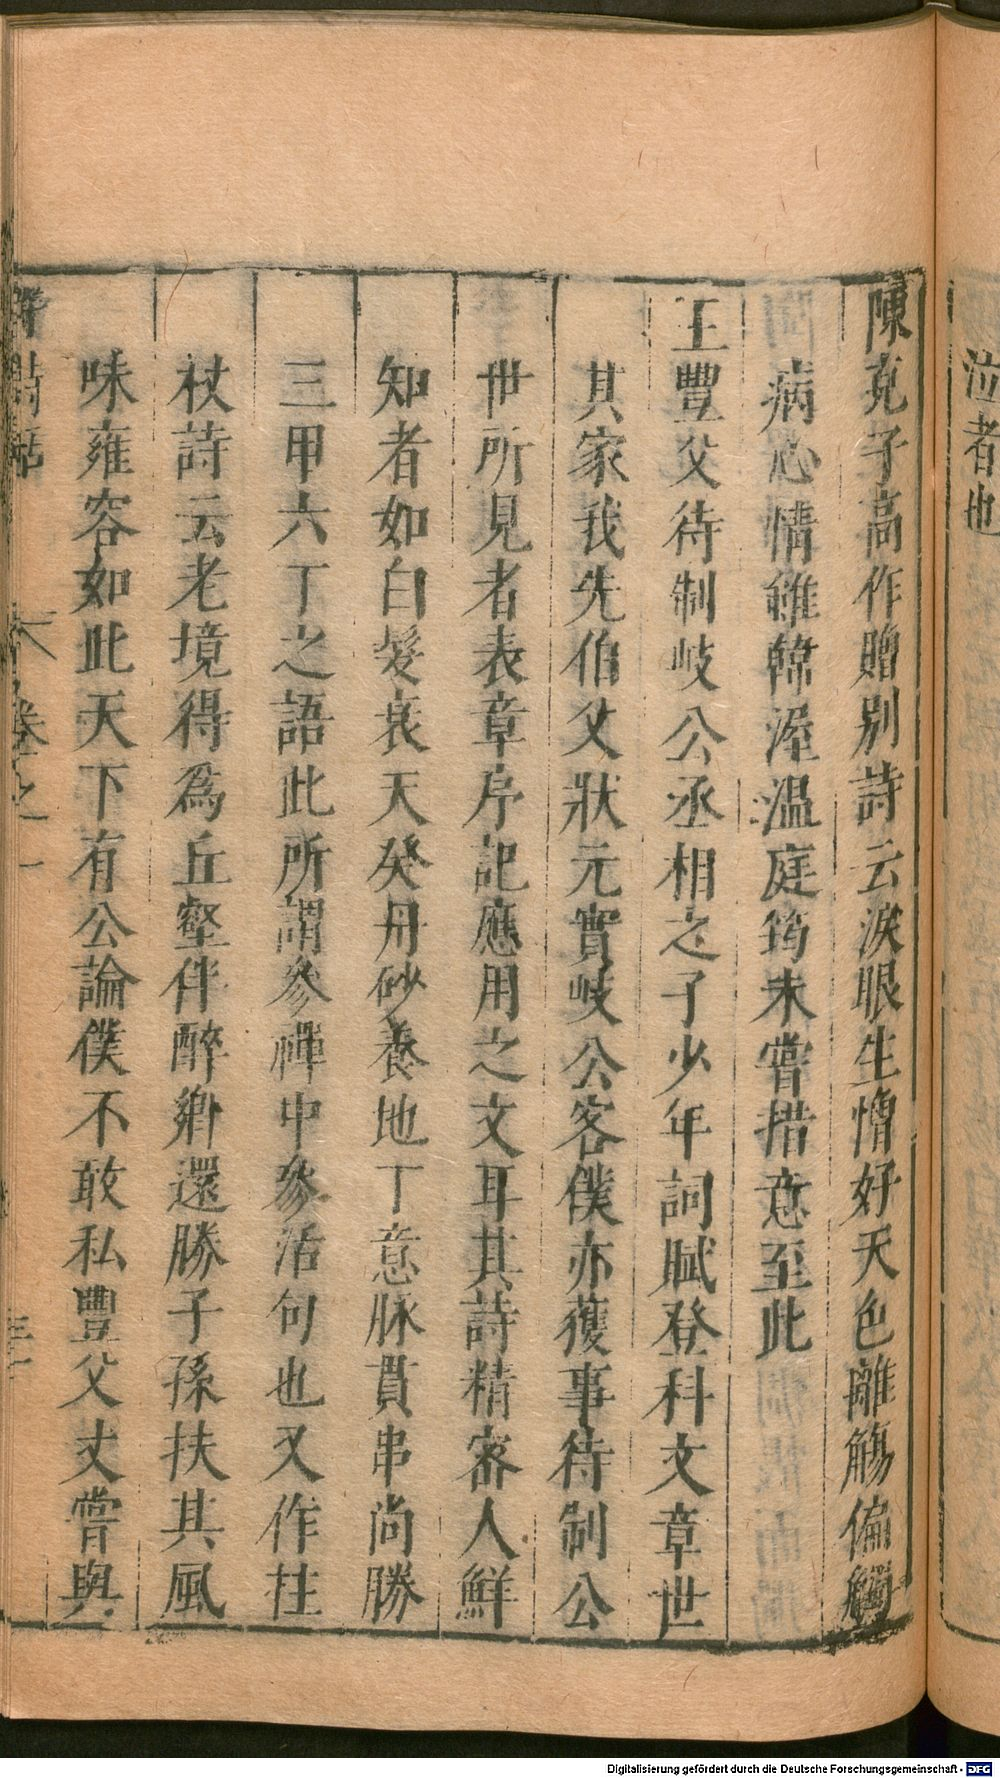 泣者也
陳克子高作贈别詩云淚眼生憎好天色離觴偏觸
病心情雖韓渥溫庭筠未嘗措意至此
王豐父待制岐公丞相之子少年詞賦登科文章世
其家我先伯父狀元實岐公客僕亦獲事待制公
世所見者表章序記應用之文耳其詩精審人鮮
知者如白髮衰天癸丹砂養地丁意脉貫串尚勝
三甲六丁之語此所謂參禪中參活句也又作拄
杖詩云老境得為丘壑伴醉鄉還勝子孫扶其風
味雍容如此天下有公論僕不敢私豐父丈嘗與
詩話
卷之一
Digitalisierung gefördert durch die Deutsche Forschungsgemeinschaft - DFG